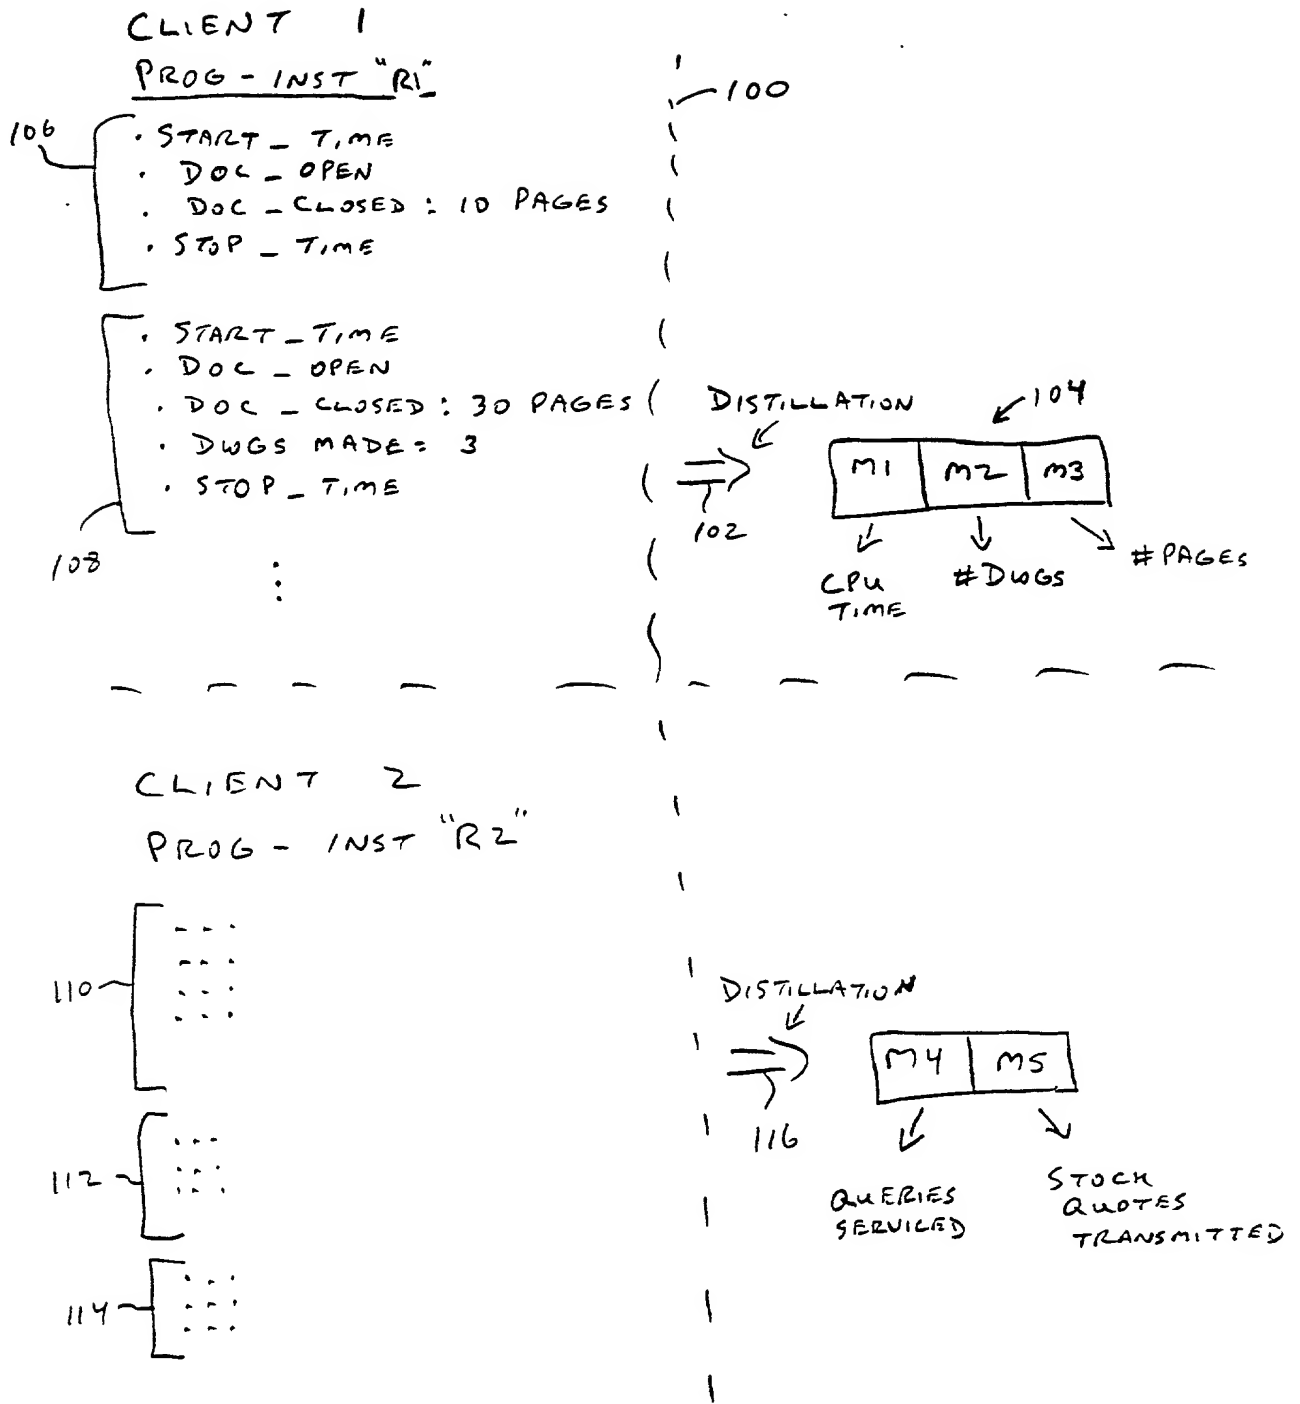 CLIENT 1
PROG - INST "R1"
100
106
· START_TIME
· DOC_OPEN
· DOC_CLOSED: 10 PAGES
· STOP_TIME
· START_TIME
· DOC_OPEN
· DOC_CLOSED: 30 PAGES
· DWGS MADE: 3
· STOP_TIME
108
DISTILLATION
104
102
M1 M2 M3
CPU TIME
#DWGS
#PAGES
CLIENT 2
PROG - INST "R2"
110
112
114
DISTILLATION
116
M4 M5
QUERIES
SERVICED
STOCK
QUOTES
TRANSMITTED